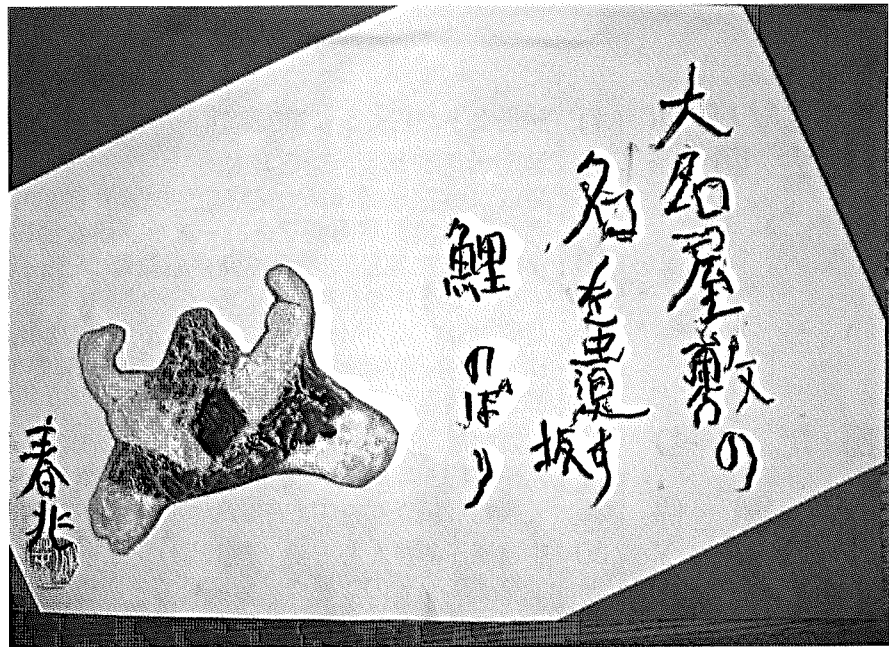 大名屋敷の
名を遺す坂
鯉のぼり